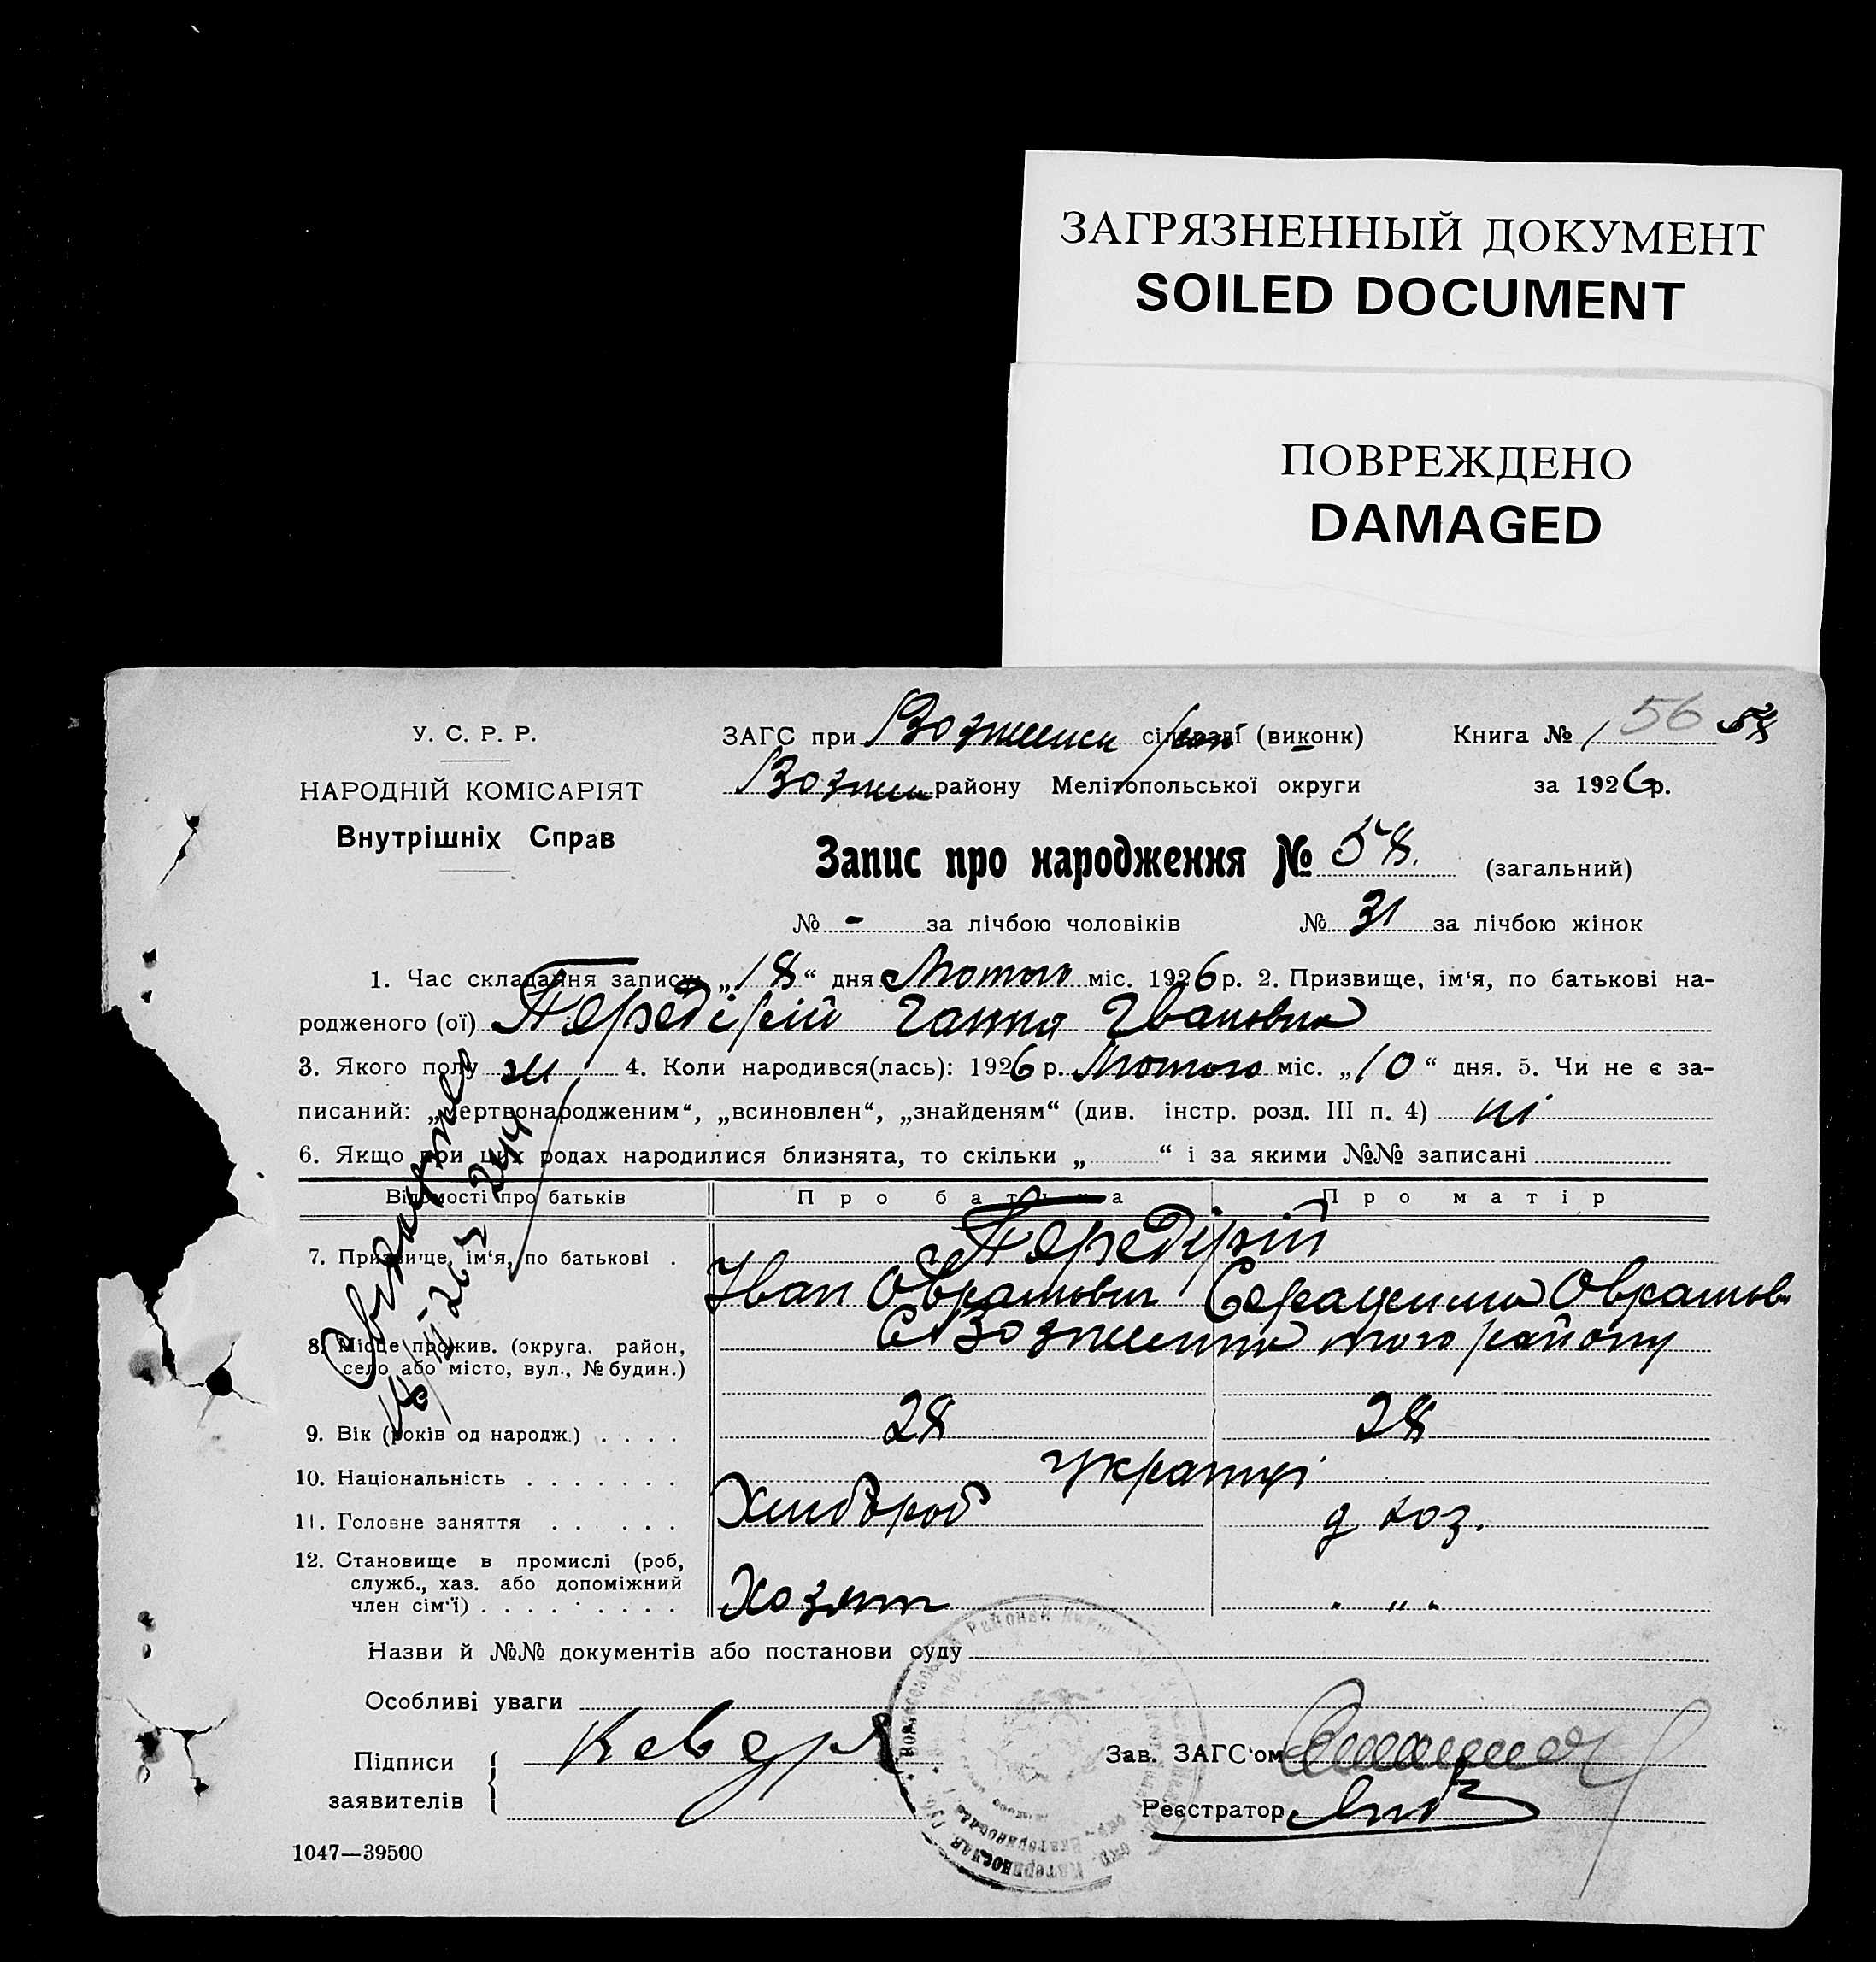 ЗАГРЯЗНЕННЫЙ ДОКУМЕНТ
SOILED DOCUMENT
ПОВРЕЖДЕНО
DAMAGED
У. С. Р. Р.
НАРОДНІЙ КОМІСАРІЯТ
Внутрішніх Справ
ЗАГС при сільраді (виконк) Книга № 1 56 58
району Мелітопольської округи за 1926р.
Запис про народження № 58. (загальний)
№ - за лічбою чоловіків № 31 за лічбою жінок
1. Час складання запису „18“ дня Лютого міс. 1926 р. 2. Призвище, ім‘я, по батькові на-
родженого (ої) Передірій Ганна Івановна
3. Якого полу ж 4. Коли народився(лась): 1926 р. Лютого міс. „10“ дня. 5. Чи не є за-
писаний: „мертвонародженим“, „всиновлен“, „знайденям“ (див. інстр. розд. III п. 4) ні
6. Якщо при цих родах народилися близнята, то скільки „ “ і за якими №№ записані
Відомості про батьків Про батька Про матір
7. Призвище, ім‘я, по батькові . Передірій
Іван Оврамович Серафима Оврамов
8. Місце прожив. (округа, район, с Вознесенка того району
село або місто, вул., № будин.)
9. Вік (років од народж.) . . . . 28 28
10. Національність . . . . . . . українці
11. Головне заняття . . . . . . Хлібороб д хоз.
12. Становище в промислі (роб,
служб., хаз. або допоміжний
член сім‘ї) . . . . . . . . . Хозяїн „
Назви й №№ документів або постанови суду
Особливі уваги
Підписи
заявителів
Зав. ЗАГС‘ом
Реєстратор
1047—39500